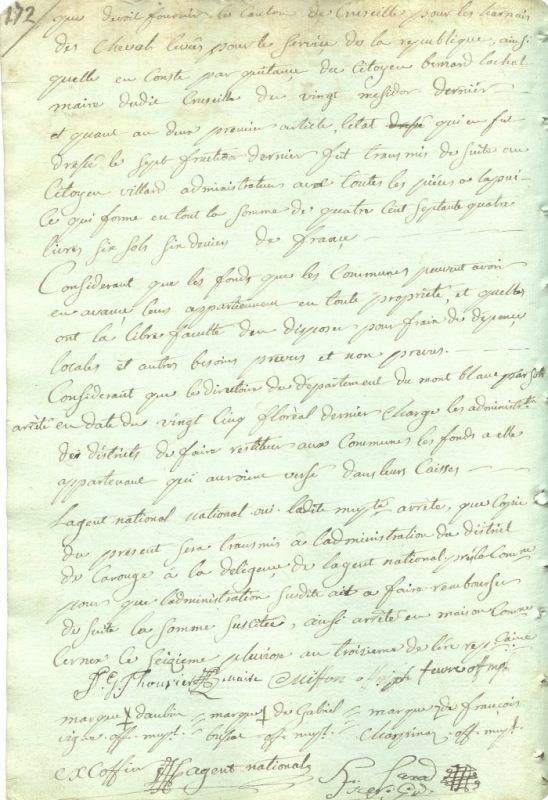 172
que devoit fournir le Canton de Cruseille pour les harnais
des Chevals levés pour le service de la republique, ainsi
quelle en Conste par quitance du Citoyen bernard lachat
maire dudit Cruseille du vingt mesidor dernier
et quant au deux premier article, letat qui en fut
dressé le sept fructidor dernier fut transmis de suite au
Citoyen villard administrateur avec toutes les pièces a lapui
Ce qui forme en tout la somme de quatre Cent septante quatre
livres six sols six deniers de france
Considerant que les fonds que les Communes peuvent avoir
en avance leurs appartiennent en toute propriété, et quelles
ont la libre faculté den disposer pour frais de depense
locales et autres besoins prevus et non prevus.
Considerant que le directoire du departement du mont blanc par son
arrêté en date du vingt Cinq floréal dernier Charge les administ
des districts de faire restituer aux Communes les fonds a elle
appartenant qui auroient versé dans leurs Caisses
Lagent national national oui ladite muplé arrête, que Copie
du present sera transmis a ladministration du district
de Carouge à la deligence de lagent national près la Comne
pour que ladministration susdite ait a faire rembourser
de suite la somme suscitée, ainsi arrêté en maison Comne
Cernex le seizieme pluviose an troisieme de lère repcaine
maire off. mpl
marque daubin marque de Gabriel marque de françois
off. mpl. off. mpl. off. mpl.
excoffier agent national